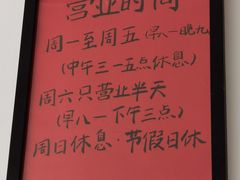 营业时间
周一至周五(早八一晚九)
(中午三一五点休息)
周六只营业半天
(早八一下午三点)
周日休息·节假日休